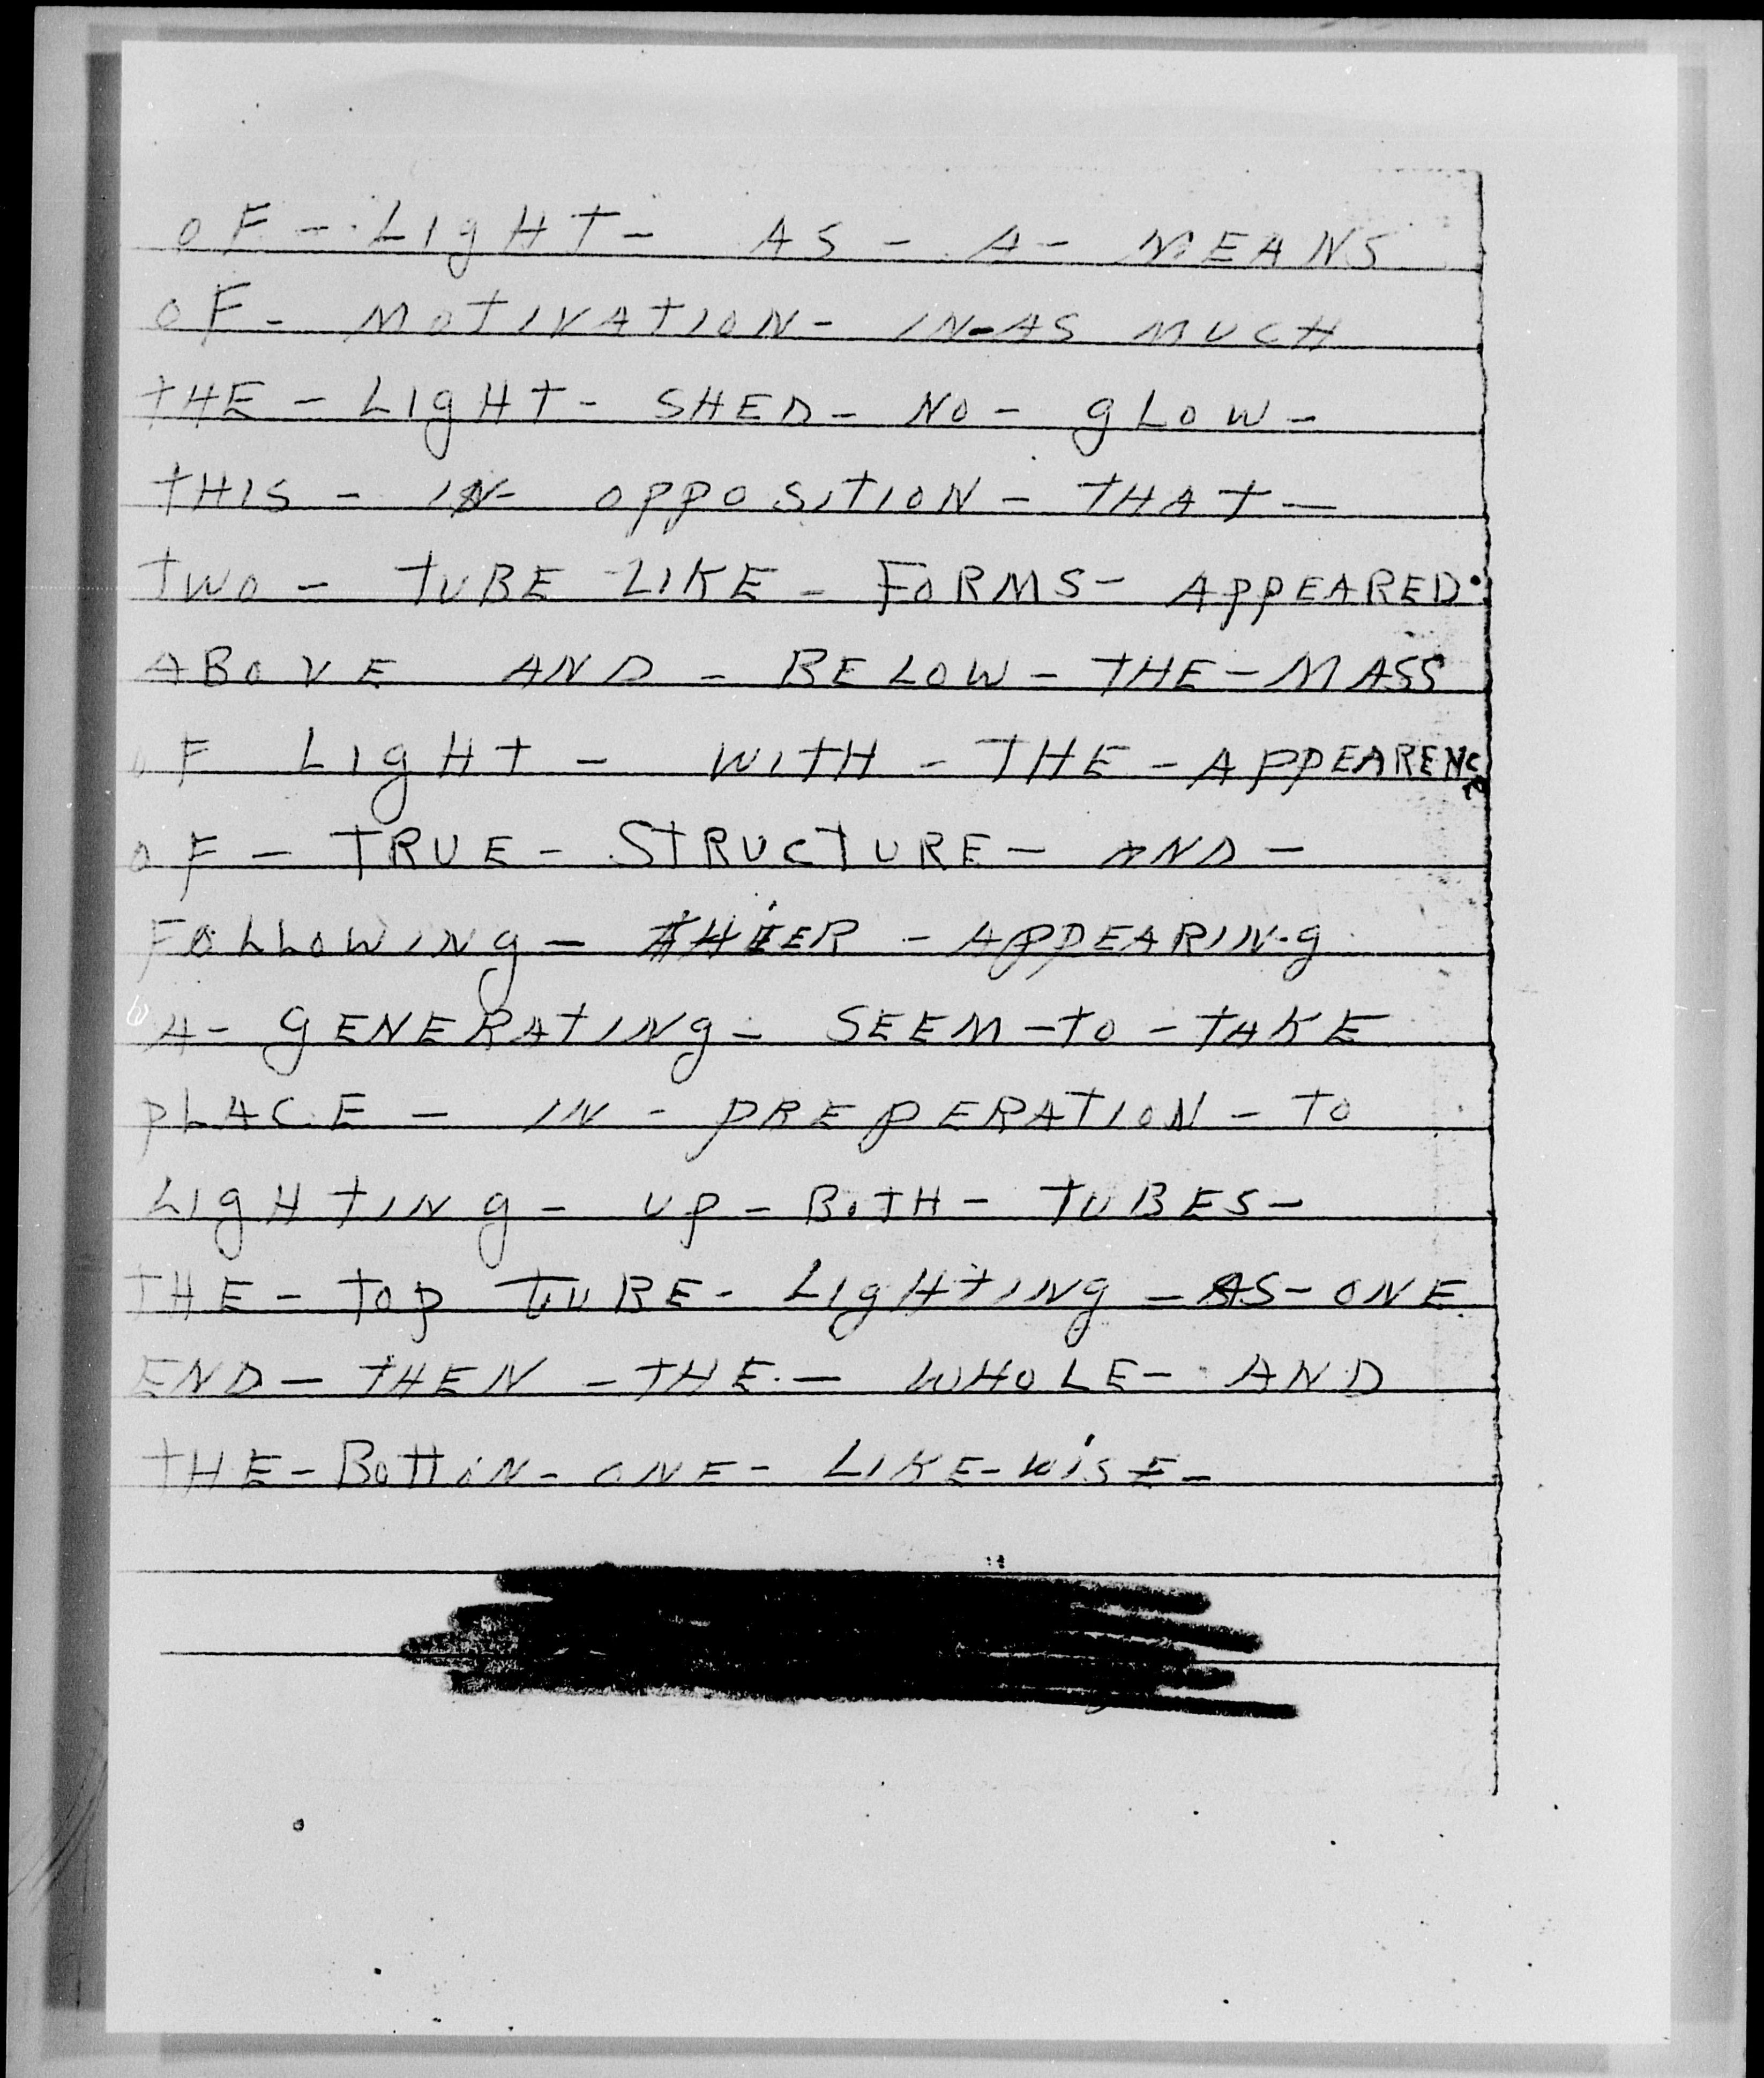 OF - LIgHT - AS - A - MEANS
OF - MOTIVATION - IN-AS MUCH
THE - LIgHT - SHED - NO - gLOW -
THIS - IN - OPPOSITION - THAT -
TWO - TUBE - LIKE - FORMS - APPEARED.
ABOVE AND - BELOW - THE - MASS
OF LIgHT - WITH - THE - APPEARENCE
OF - TRUE - STRUCTURE - AND -
FOLLOWINg - THIER - APPEARINg
A - gENERATINg - SEEM - TO - TAKE
PLACE - IN - PREPERATION - TO
LIgHTINg - UP - BOTH - TUBES -
THE - TOP TUBE - LIgHTINg - AS - ONE
END - THEN - THE - WHOLE - AND
THE - BOTTIN - ONE - LIKE-WiSE -